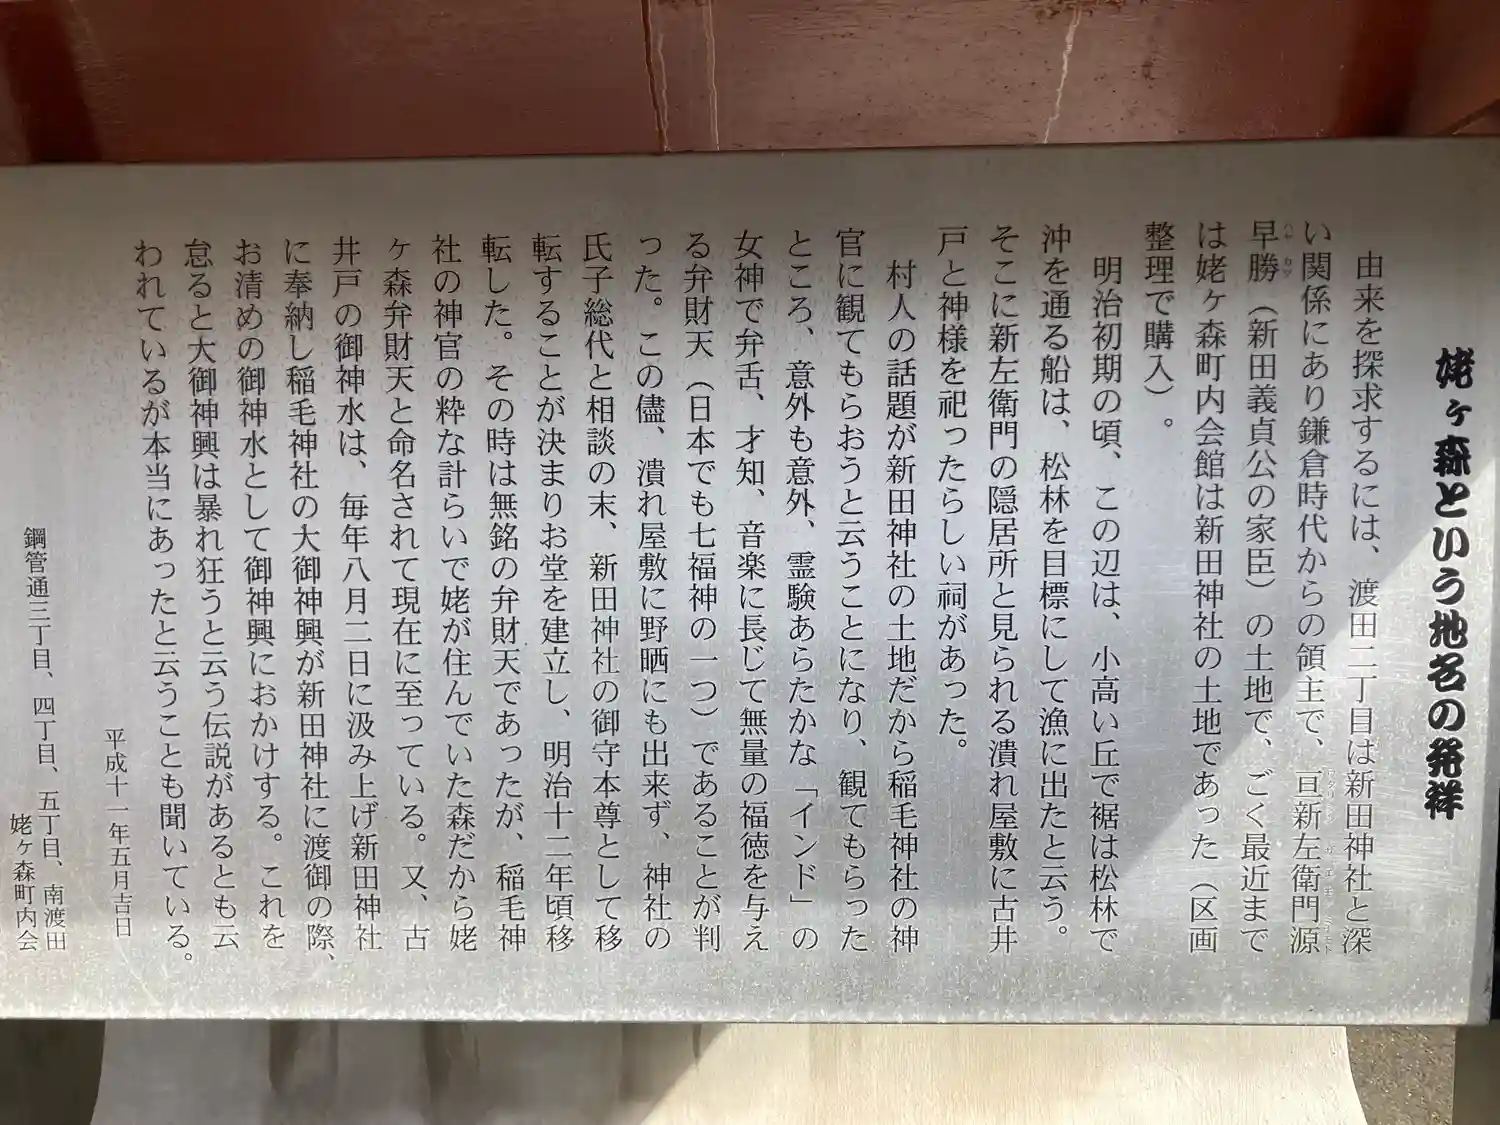 姥ヶ森という地名の発祥
由来を探求するには、渡田二丁目は新田神社と深
い関係にあり鎌倉時代からの領主で、亘新左衛門源
早勝（新田義貞公の家臣）の土地で、ごく最近まで
は姥ヶ森町内会館は新田神社の土地であった（区画
整理で購入）。
明治初期の頃、この辺は、小高い丘で裾は松林で
沖を通る船は、松林を目標にして漁に出たと云う。
そこに新左衛門の隠居所と見られる潰れ屋敷に古井
戸と神様を祀ったらしい祠があった。
村人の話題が新田神社の土地だから稲毛神社の神
官に観てもらおうと云うことになり、観てもらった
ところ、意外も意外、霊験あらたかな「インド」の
女神で弁舌、才知、音楽に長じて無量の福徳を与え
る弁財天（日本でも七福神の一つ）であることが判
った。この儘、潰れ屋敷に野晒にも出来ず、神社の
氏子総代と相談の末、新田神社の御守本尊として移
転することが決まりお堂を建立し、明治十二年頃移
転した。その時は無銘の弁財天であったが、稲毛神
社の神官の粋な計らいで姥が住んでいた森だから姥
ヶ森弁財天と命名されて現在に至っている。又、古
井戸の御神水は、毎年八月二日に汲み上げ新田神社
に奉納し稲毛神社の大御神興が新田神社に渡御の際、
お清めの御神水として御神興におかけする。これを
怠ると大御神興は暴れ狂うと云う伝説があるとも云
われているが本当にあったと云うことも聞いている。
平成十一年五月吉日
鋼管通三丁目、四丁目、五丁目、南渡田
姥ヶ森町内会